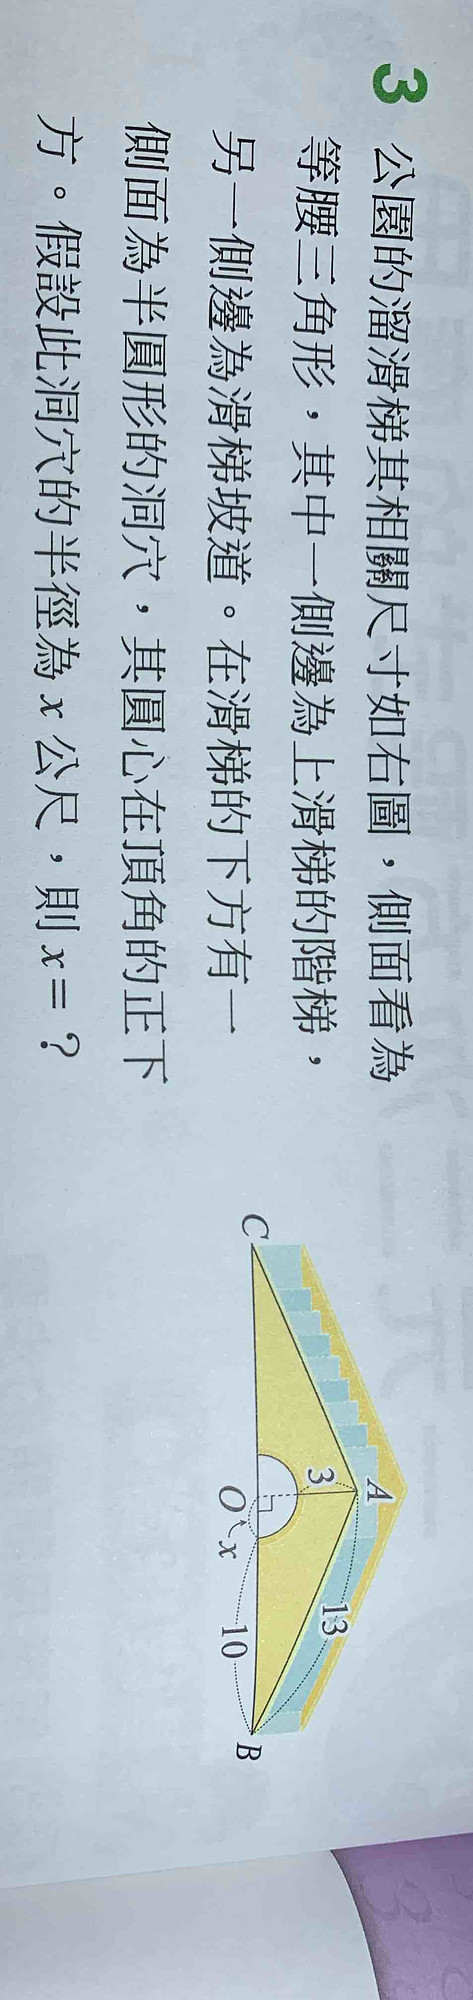 3 公園的溜滑梯其相關尺寸如右圖，側面看為
等腰三角形，其中一側邊為上滑梯的階梯，
另一側邊為滑梯坡道。在滑梯的下方有一
側面為半圓形的洞穴，其圓心在頂角的正下
方。假設此洞穴的半徑為 x 公尺，則 x＝？
A
3
13
C
O
x
10
B